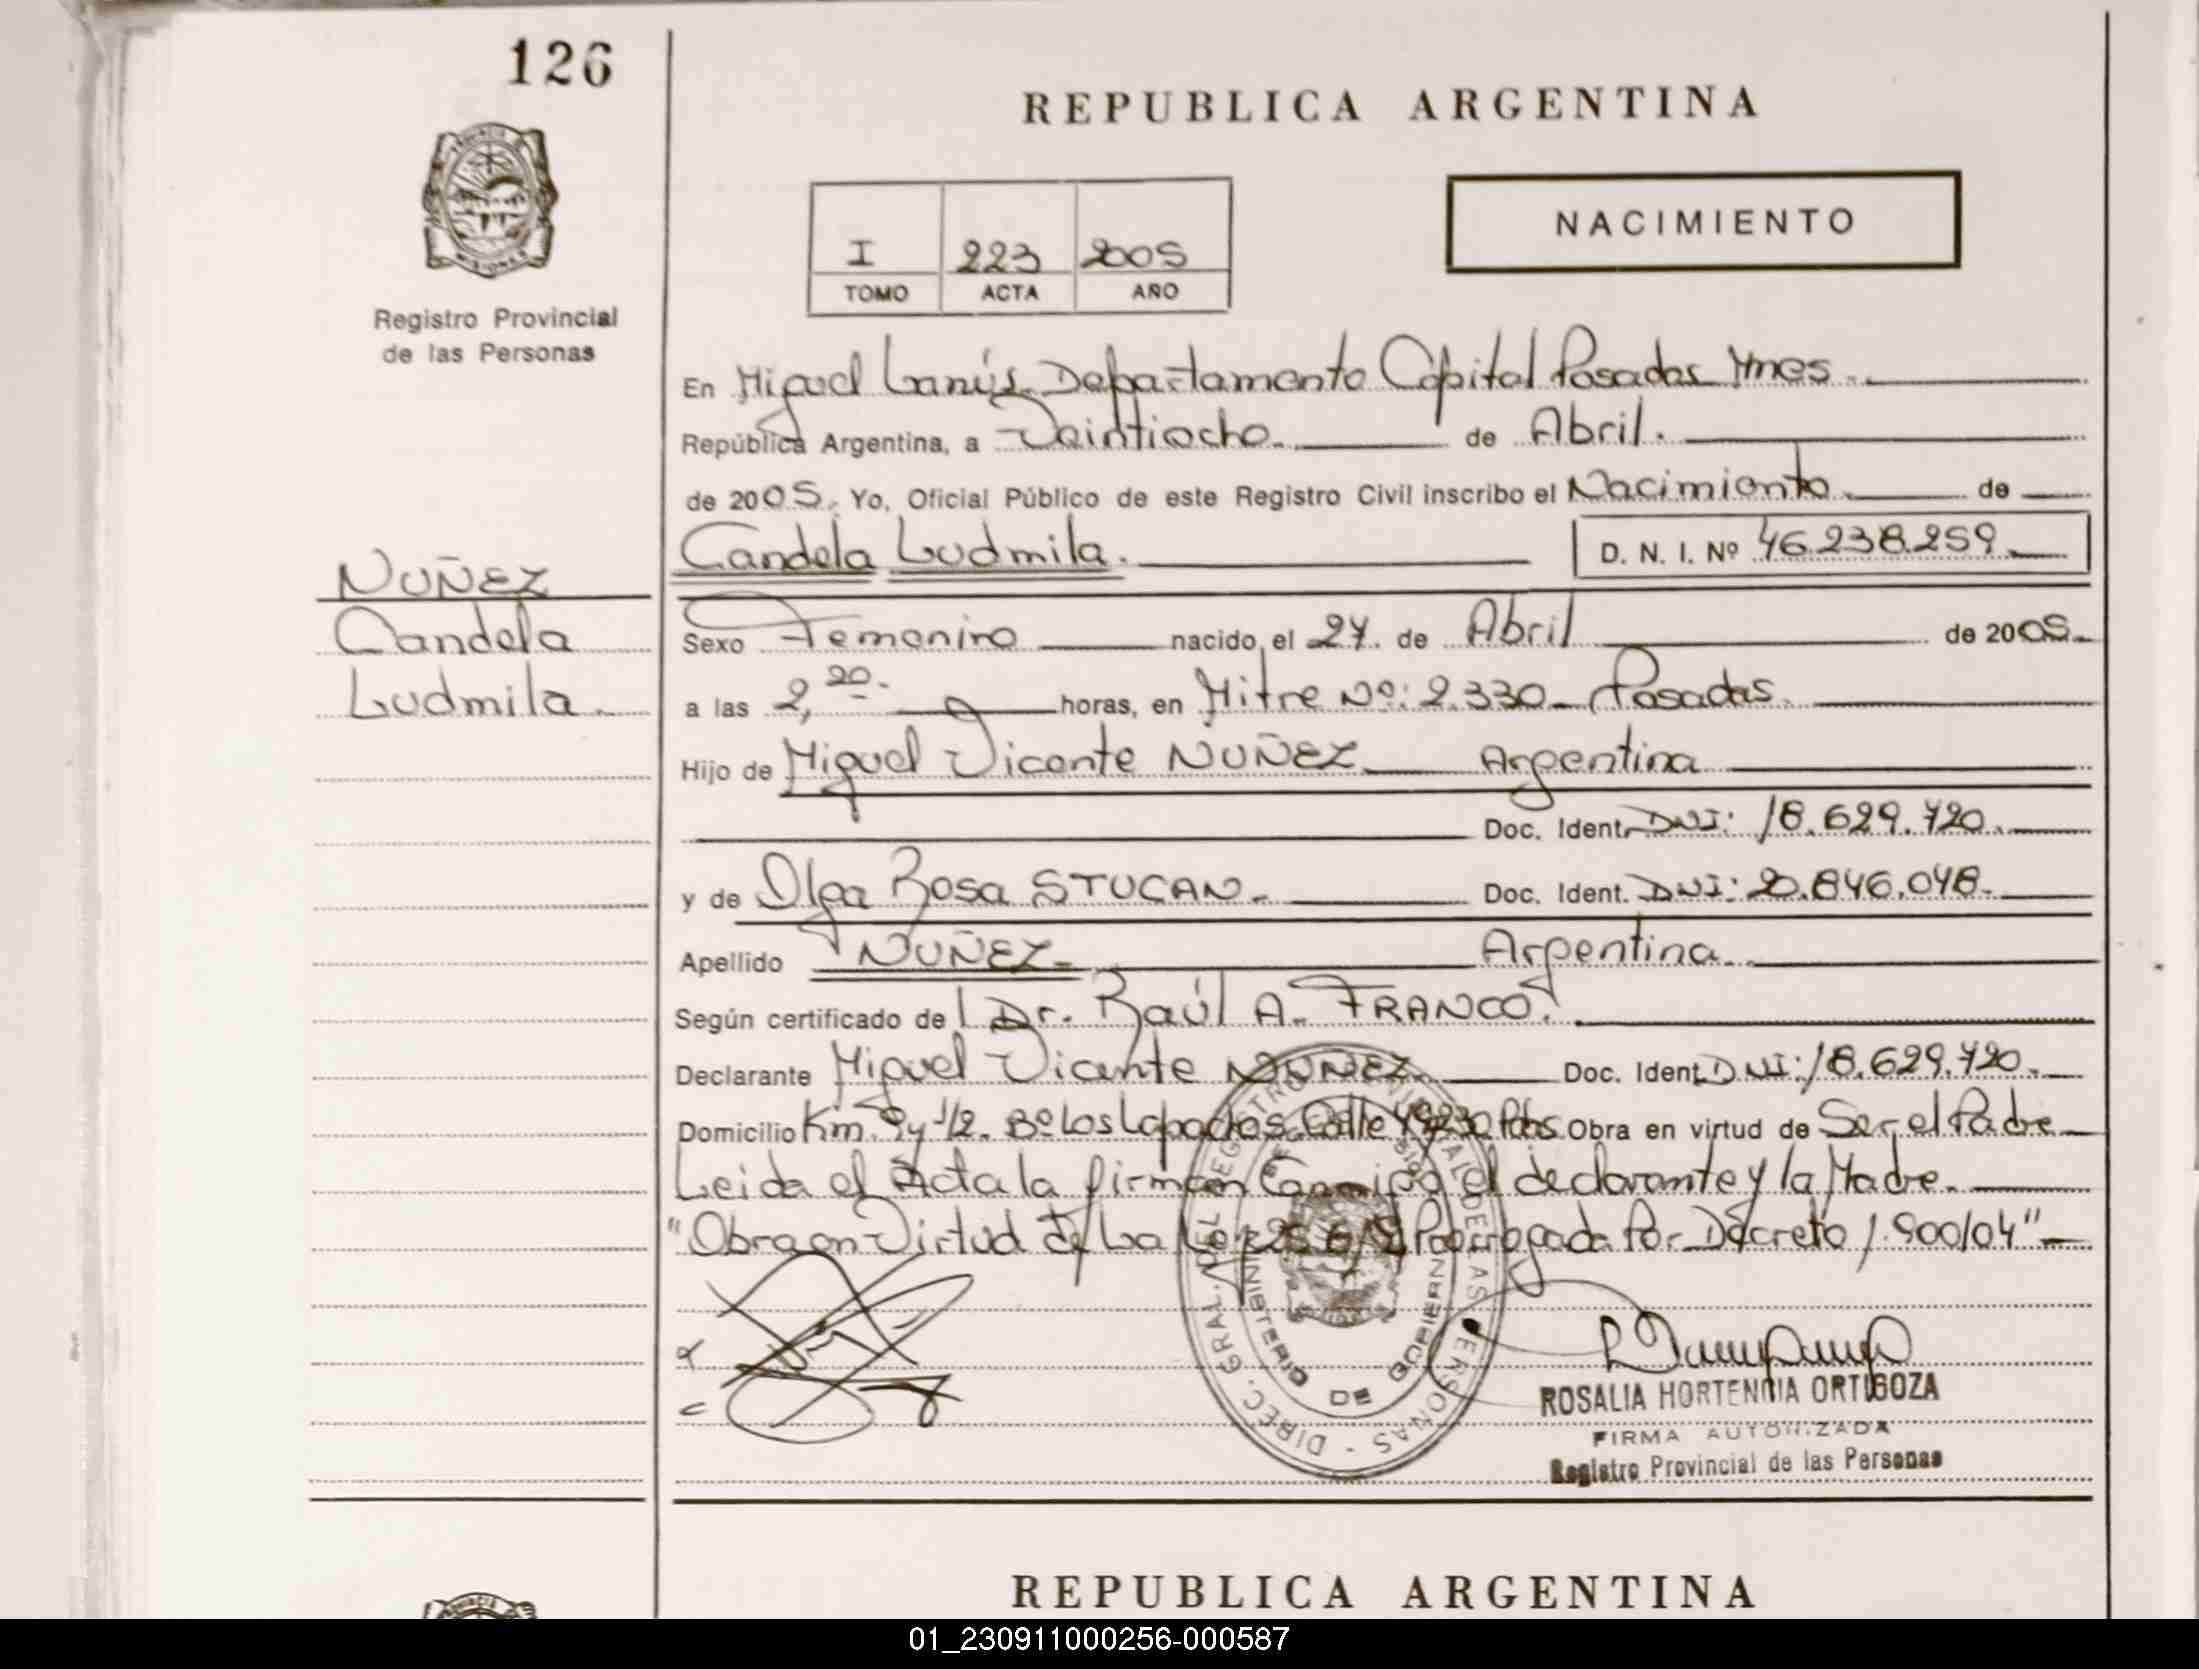 126
REPUBLICA ARGENTINA
PROVINCIA
MISIONES
Registro Provincial
de las Personas
NACIMIENTO
I 223 2005
TOMO ACTA AÑO
En Miguel Lanús Departamento Capital Posadas Mnes.
República Argentina, a Veintiocho. de Abril.
de 2005. Yo, Oficial Público de este Registro Civil inscribo el Nacimiento de
Candela Ludmila. D. N. I. Nº 46.238.259
NUÑEZ
Candela
Ludmila.
Sexo Femenino nacido el 27. de Abril de 2005.
a las 2,20. horas, en Mitre Nº: 2.330 - Posadas.
Hijo de Miguel Vicente NUÑEZ Argentina
Doc. Ident. DNI: 18.629.720.
y de Olga Rosa STUCAN. Doc. Ident. DNI: 20.846.048.
Apellido NUÑEZ. Argentina.
Según certificado de Dr. Raúl A. FRANCO.
Declarante Miguel Vicente NUÑEZ. Doc. Ident. DNI: 18.629.720.
Domicilio Km. 9 y 1/2. Bº Los Lapachos. Calle Pdas. Obra en virtud de Ser el Padre
Leida el Acta la firman Conmigo el declarante y la Madre.
"Obra en Virtud de La Ley Prorrogada Por Decreto 1.900/04"
DIREC. GRAL. DEL REGISTRO PROVINCIAL DE LAS PERSONAS
MINISTERIO DE GOBIERNO
ROSALIA HORTENCIA ORTIGOZA
FIRMA AUTORIZADA
Registro Provincial de las Personas
REPUBLICA ARGENTINA
01_230911000256-000587